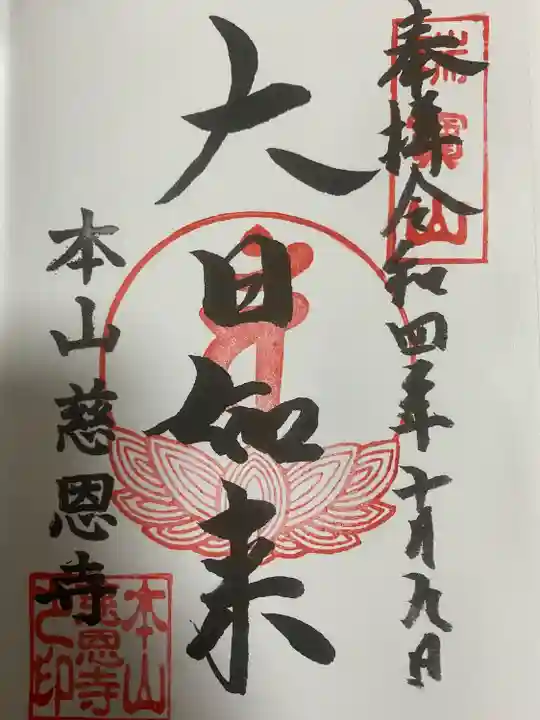 奉拝令和四年十月九日
瑞寳山
大日如来
本山慈恩寺
本山慈恩寺之印